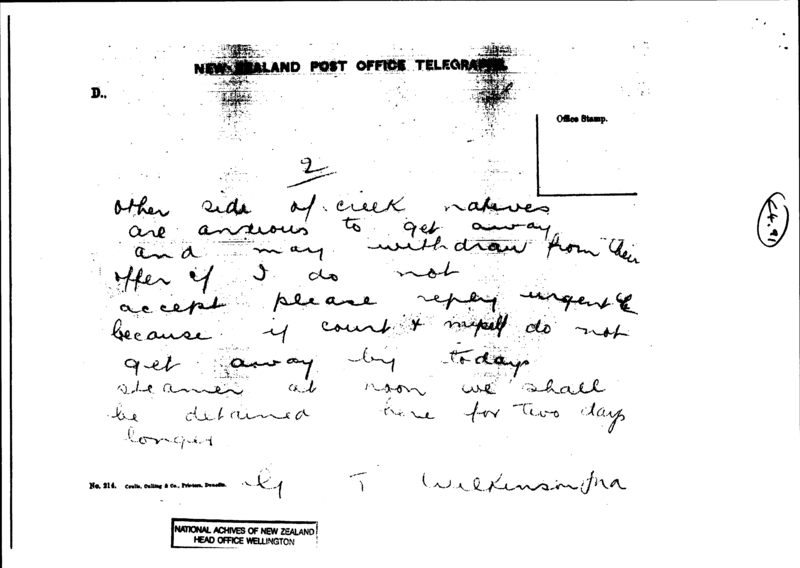 NEW ZEALAND POST OFFICE TELEGRAPHS.
D.,
Office Stamp.
2
other side of creek natives
are anxious to get away
and may withdraw from their
offer if I do not
accept please reply urgent
because if court & myself do not
get away by todays
steamer at noon we shall
be detained here for two days
longer
T Wilkinson
No. 214. Coulls, Culling & Co., Printers, Dunedin.
NATIONAL ACHIVES OF NEW ZEALAND
HEAD OFFICE WELLINGTON